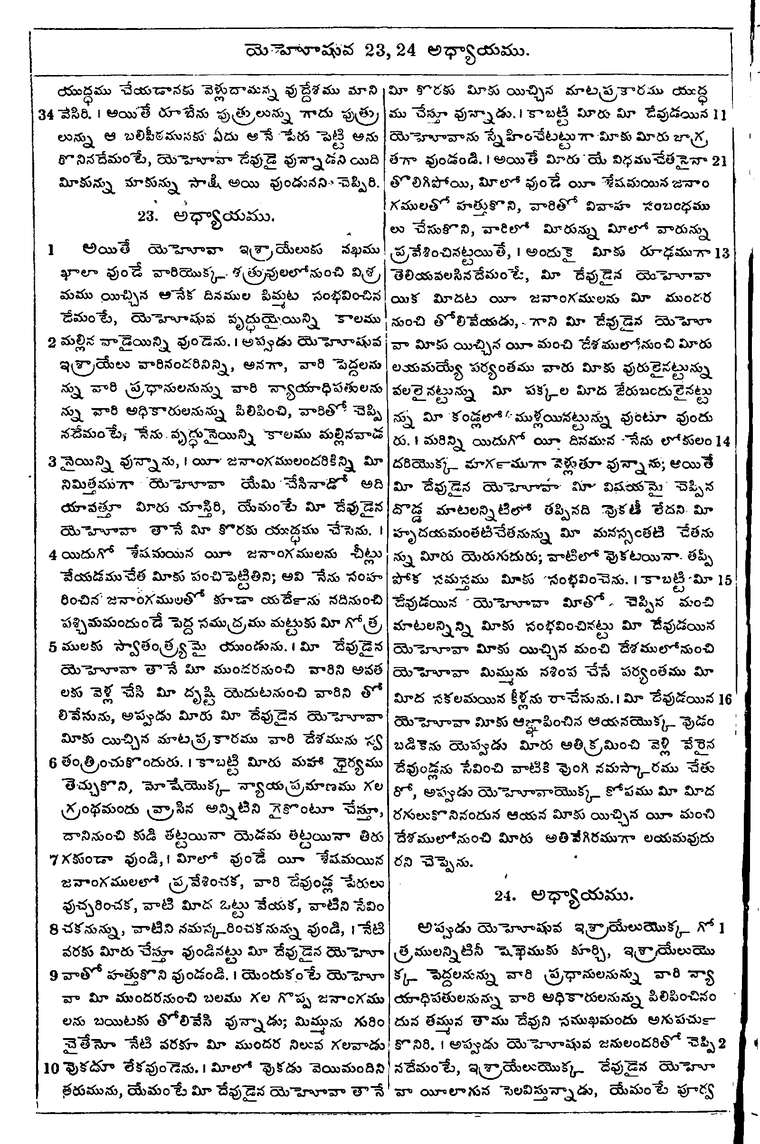 యెహోషువ 23, 24 అధ్యాయము.
యుద్ధము చేయడానకు వెళ్లుదామన్న వుద్దేశము మాని
34 వేసిరి. । అయితే రూబేను పుత్రులున్ను గాదు పుత్రు
లున్ను ఆ బలిపీఠమునకు ఏదు అనే పేరు పెట్టి అను
కొనినదేమంటే, యెహోవా దేవుడై వున్నాడని యిది
మీకున్ను మాకున్ను సాక్షి అయి వుండునని చెప్పిరి.
23. అధ్యాయము.
1 అయితే యెహోవా ఇశ్రాయేలుకు నఖము
ఖాలా వుండే వారియొక్క శత్రువులలోనుంచి విశ్ర
మము యిచ్చిన అనేక దినముల పిమ్మట సంభవించిన
దేమంటే, యెహోషువ వృద్ధుయైయిన్ని కాలము
2 మల్లిన నాడైయిన్ని వుండెను. । అప్పుడు యెహోషువ
ఇశ్రాయేలు వారినందరినిన్ని, అనగా, వారి పెద్దలను
న్ను వారి ప్రధానులనున్ను వారి న్యాయాధిపతులను
న్ను వారి అధికారులనున్ను పిలిపించి, వారితో చెప్పి
నదేమంటే; నేను వృద్ధునైయిన్ని కాలము మల్లినవాడ
3 నైయిన్ని వున్నాను, । యీ జనాంగములందరికిన్ని మీ
నిమిత్తముగా యెహోవా యేమి చేసినాడో అది
యావత్తూ మీరు చూస్తిరి, యేమంటే మీ దేవుడైన
యెహోవా తానే మీ కొరకు యుద్ధము చేసెను. ।
4 యిదుగో శేషమయిన యీ జనాంగములను చీట్లు
వేయడముచేత మీకు పంచిపెట్టితిని; అవి నేను సంహ
రించిన జనాంగములతో కూడా యర్దేను నదినుంచి
పశ్చిమమందుండే పెద్ద సముద్రము మట్టుకు మీ గోత్ర
5 ములకు స్వాతంత్ర్యమై యుండును. । మీ దేవుడైన
యెహోవా తానే మీ ముందరనుంచి వారిని అవత
లకు వెళ్ల చేసి మీ దృష్టి యెదుటనుంచి వారిని తో
లివేసును, అప్పుడు మీరు మీ దేవుడైన యెహోవా
మీకు యిచ్చిన మాటప్రకారము వారి దేశమును స్వ
6 తంత్రించుకొందురు. । కాబట్టి మీరు మహా ధైర్యము
తెచ్చుకొని, మోషేయొక్క న్యాయప్రమాణము గల
గ్రంథమందు వ్రాసిన అన్నిటిని గైకొంటూ చేస్తూ,
దానినుంచి కుడి తట్టయినా యెడమ తట్టయినా తిరు
7 గకుండా వుండి, । మీలో వుండే యీ శేషమయిన
జనాంగములలో ప్రవేశించక, వారి దేవుండ్ల పేరులు
వుచ్చరించక, వాటి మీద ఒట్టు వేయక, వాటిని సేవిం
8 చకనున్ను, వాటిని నమస్కరించకనున్ను వుండి, । నేటి
వరకు మీరు చేస్తూ వుండినట్టు మీ దేవుడైన యెహో
9 వాతో హత్తుకొని వుండండి. । యెందుకంటే యెహో
వా మీ ముందరనుంచి బలము గల గొప్ప జనాంగము
లను బయిటకు తోలివేసి వున్నాడు; మిమ్మును గురిం
చైతేనో నేటి వరకూ మీ ముందర నిలువ గలవాడు
10 వొకడూ లేకవుండెను. । మీలో వొకడు వెయిమందిని
తరుమును, యేమంటే మీ దేవుడైన యెహోవా తానే
మీ కొరకు మీకు యిచ్చిన మాటప్రకారము యుద్ధ
ము చేస్తూ వున్నాడు. । కాబట్టి మీరు మీ దేవుడయిన 11
యెహోవాను స్నేహించేటట్టుగా మీకు మీరు జాగ్ర
తగా వుండండి. । అయితే మీరు యే విధముచేతనైనా 21
తొలిగిపోయి, మీలో వుండే యీ శేషమయిన జనాం
గములతో హత్తుకొని, వారితో వివాహ సంబంధము
లు చేసుకొని, వారిలో మీరున్ను మీలో వారున్ను
ప్రవేశించినట్టయితే, । అందుకై మీకు రూఢముగా 13
తెలియవలసినదేమంటే, మీ దేవుడైన యెహోవా
యిక మీదట యీ జనాంగములను మీ ముందర
నుంచి తోలివేయడు, గాని మీ దేవుడైన యెహో
వా మీకు యిచ్చిన యీ మంచి దేశములోనుంచి మీరు
లయమయ్యే పర్యంతము వారు మీకు వురులైనట్టున్ను
వలలైనట్టున్ను మీ పక్కల మీద జేరుబందులైనట్టు
న్ను మీ కండ్లలో ముళ్లయినట్టున్ను వుంటూ వుందు
రు. । మరిన్ని యిదుగో యీ దినమున నేను లోకులం 14
దరియొక్క మార్గముగా వెళ్లుతూ వున్నాను; అయితే
మీ దేవుడైన యెహోవా మీ విషయమై చెప్పిన
దొడ్డ మాటలన్నిటిలో తప్పినది వొకటీ లేదని మీ
హృదయమంతటిచేతనున్ను మీ మనస్సంతటి చేతను
న్ను మీరు యెరుగుదురు; వాటిలో వొకటయినా తప్పి
పోక సమస్తము మీకు సంభవించెను. । కాబట్టి మీ 15
దేవుడయిన యెహోవా మీతో చెప్పిన మంచి
మాటలన్నిన్ని మీకు సంభవించినట్టు మీ దేవుడయిన
యెహోవా మీకు యిచ్చిన మంచి దేశములోనుంచి
యెహోవా మిమ్మును నశింప చేసే పర్యంతము మీ
మీద సకలమయిన కీళ్లను రాచేసును. । మీ దేవుడయిన 16
యెహోవా మీకు ఆజ్ఞాపించిన ఆయనయొక్క వొడం
బడికెను యెప్పుడు మీరు అతిక్రమించి వెళ్లి వేరైన
దేవుండ్లను సేవించి వాటికి వొంగి నమస్కారము చేతు
రో, అప్పుడు యెహోవాయొక్క కోపము మీ మీద
రగులుకొనినందున ఆయన మీకు యిచ్చిన యీ మంచి
దేశములోనుంచి మీరు అతివేగిరముగా లయమవుదు
రని చెప్పెను.
24. అధ్యాయము.
అప్పుడు యెహోషువ ఇశ్రాయేలుయొక్క గో 1
త్రములన్నిటినీ షెఖెముకు కూర్చి, ఇశ్రాయేలుయొ
క్క పెద్దలనున్ను వారి ప్రధానులనున్ను వారి న్యా
యాధిపతులనున్ను వారి అధికారులనున్ను పిలిపించినం
దున తమ్మున తాము దేవుని సముఖమందు అగుపర్చు
కొనిరి. । అప్పుడు యెహోషువ జనులందరితో చెప్పి 2
నదేమంటే, ఇశ్రాయేలుయొక్క దేవుడైన యెహో
వా యీలాగున సెలవిస్తున్నాడు, యేమంటే పూర్వ